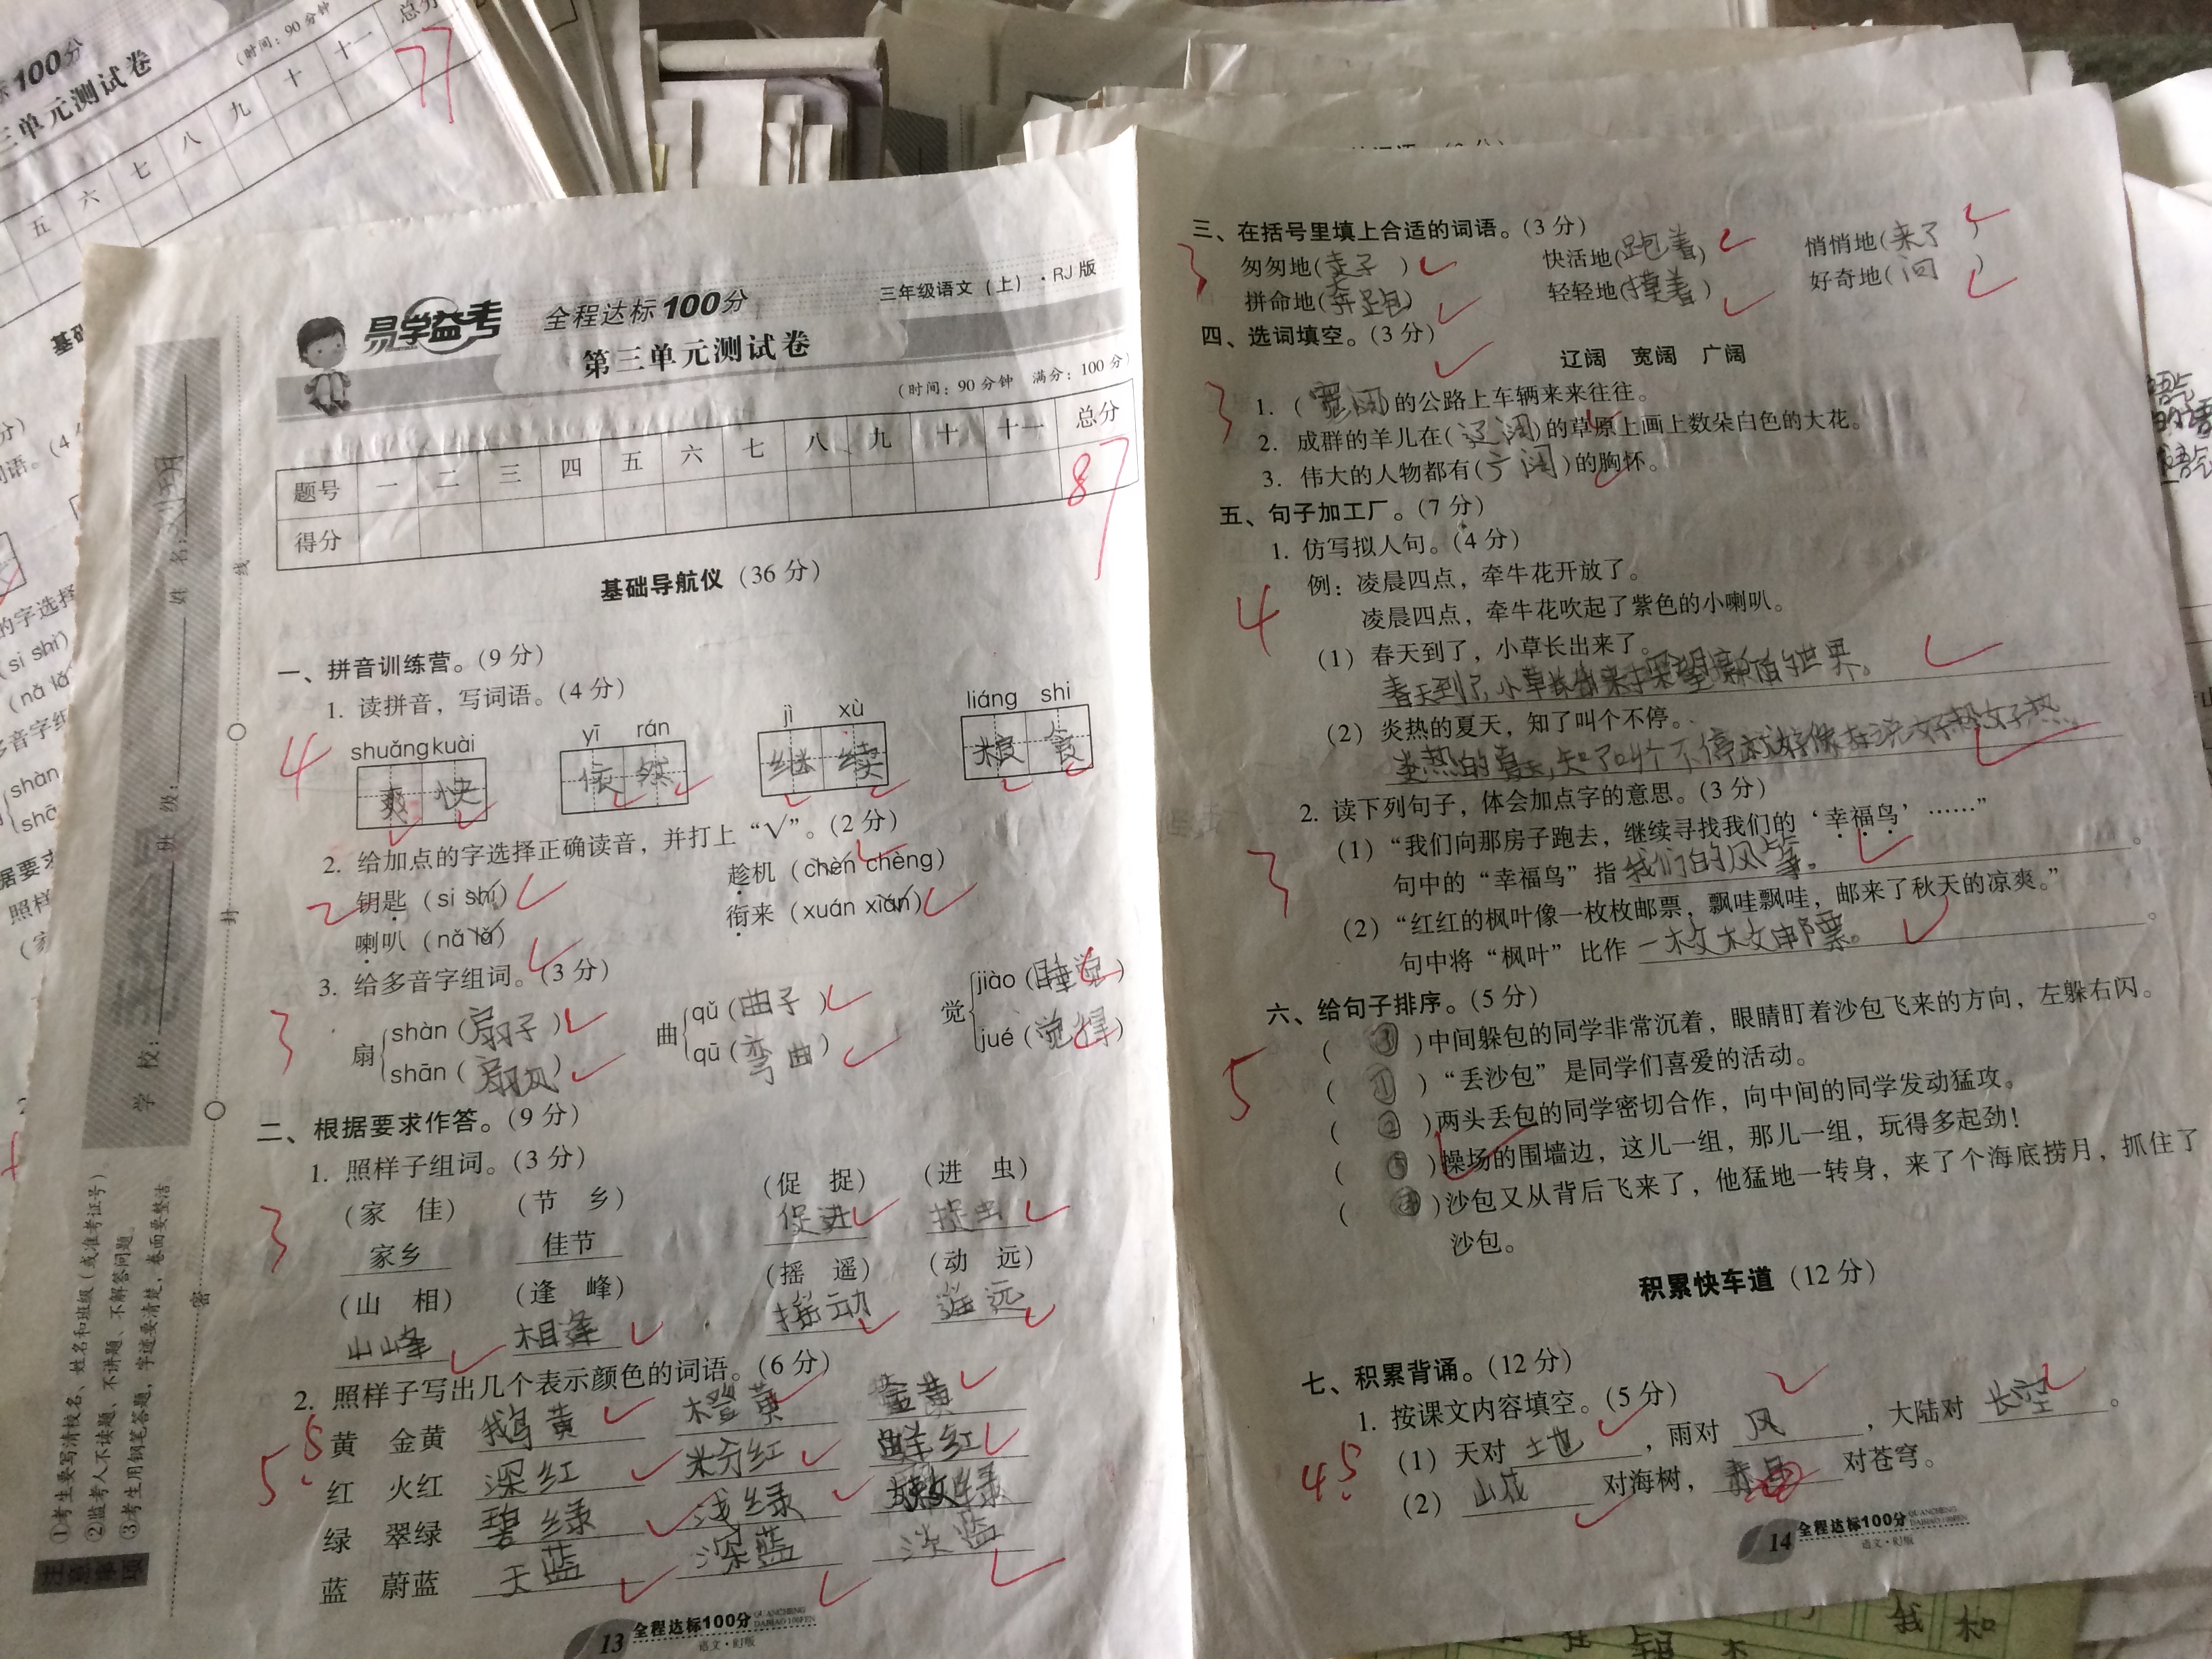 标100分
三单元测试卷
(时间：90分钟
五 六 七 八 九 十 十一 总分
77
学 校： 班 级： 姓 名：
密 封 线
注意事项
①考生要写清校名、姓名和班级（或准考证号）
②监考人不读题、不讲题、不解答问题。
③考生用钢笔答题，字迹要清楚，卷面要整洁
易学益考 全程达标100分 三年级语文（上）·RJ版
第三单元测试卷
（时间：90分钟 满分：100分）
题号 一 二 三 四 五 六 七 八 九 十 十一 总分
得分 87
基础导航仪（36分）
一、拼音训练营。（9分）
1. 读拼音，写词语。（4分）
4
shuǎng kuài yī rán jì xù liáng shi
爽快 依然 继续 粮食
2. 给加点的字选择正确读音，并打上“√”。（2分）
2
钥匙（si shi） 趁机（chèn chèng）
喇叭（nǎ lǎ） 衔来（xuán xián）
3. 给多音字组词。（3分）
3
扇 shàn（扇子） 曲 qǔ（曲子） 觉 jiào（睡觉）
shān（扇风） qū（弯曲） jué（觉得）
二、根据要求作答。（9分）
1. 照样子组词。（3分）
3
（家 佳） （节 乡） （促 捉） （进 虫）
家乡 佳节 促进 捉虫
（山 相） （逢 峰） （摇 遥） （动 远）
山峰 相逢 摇动 遥远
2. 照样子写出几个表示颜色的词语。（6分）
5.5
黄 金黄 鹅黄 橙黄
红 火红 深红 粉红 鲜红
绿 翠绿 碧绿 浅绿
蓝 蔚蓝 天蓝 深蓝 淡蓝
13 全程达标100分 QUANCHENG DABIAO 100FEN
语文·RJ版
三、在括号里填上合适的词语。（3分）
3
匆匆地（走了） 快活地（跑着） 悄悄地（来了）
拼命地（奔跑） 轻轻地（摸着） 好奇地（问）
四、选词填空。（3分）
辽阔 宽阔 广阔
3
1.（宽阔）的公路上车辆来来往往。
2. 成群的羊儿在（辽阔）的草原上画上数朵白色的大花。
3. 伟大的人物都有（广阔）的胸怀。
五、句子加工厂。（7分）
1. 仿写拟人句。（4分）
4
例：凌晨四点，牵牛花开放了。
凌晨四点，牵牛花吹起了紫色的小喇叭。
（1）春天到了，小草长出来了。
春天到了，小草 来探望 的世界。
（2）炎热的夏天，知了叫个不停。
炎热的夏天，知了叫个不停 好像在说好热好热
2. 读下列句子，体会加点字的意思。（3分）
3
（1）“我们向那房子跑去，继续寻找我们的‘幸福鸟’……”
句中的“幸福鸟”指 我们的风筝。
（2）“红红的枫叶像一枚枚邮票，飘哇飘哇，邮来了秋天的凉爽。”
句中将“枫叶”比作 一枚枚邮票。
六、给句子排序。（5分）
5
（③）中间躲包的同学非常沉着，眼睛盯着沙包飞来的方向，左躲右闪。
（①）“丢沙包”是同学们喜爱的活动。
（②）两头丢包的同学密切合作，向中间的同学发动猛攻。
（⑤）操场的围墙边，这儿一组，那儿一组，玩得多起劲！
（④）沙包又从背后飞来了，他猛地一转身，来了个海底捞月，抓住了
沙包。
积累快车道（12分）
七、积累背诵。（12分）
1. 按课文内容填空。（5分）
4.5
（1）天对 地 ，雨对 风 ，大陆对 长空 。
（2） 山花 对海树， 对苍穹。
14 全程达标100分 QUANCHENG DABIAO 100FEN
语文·RJ版